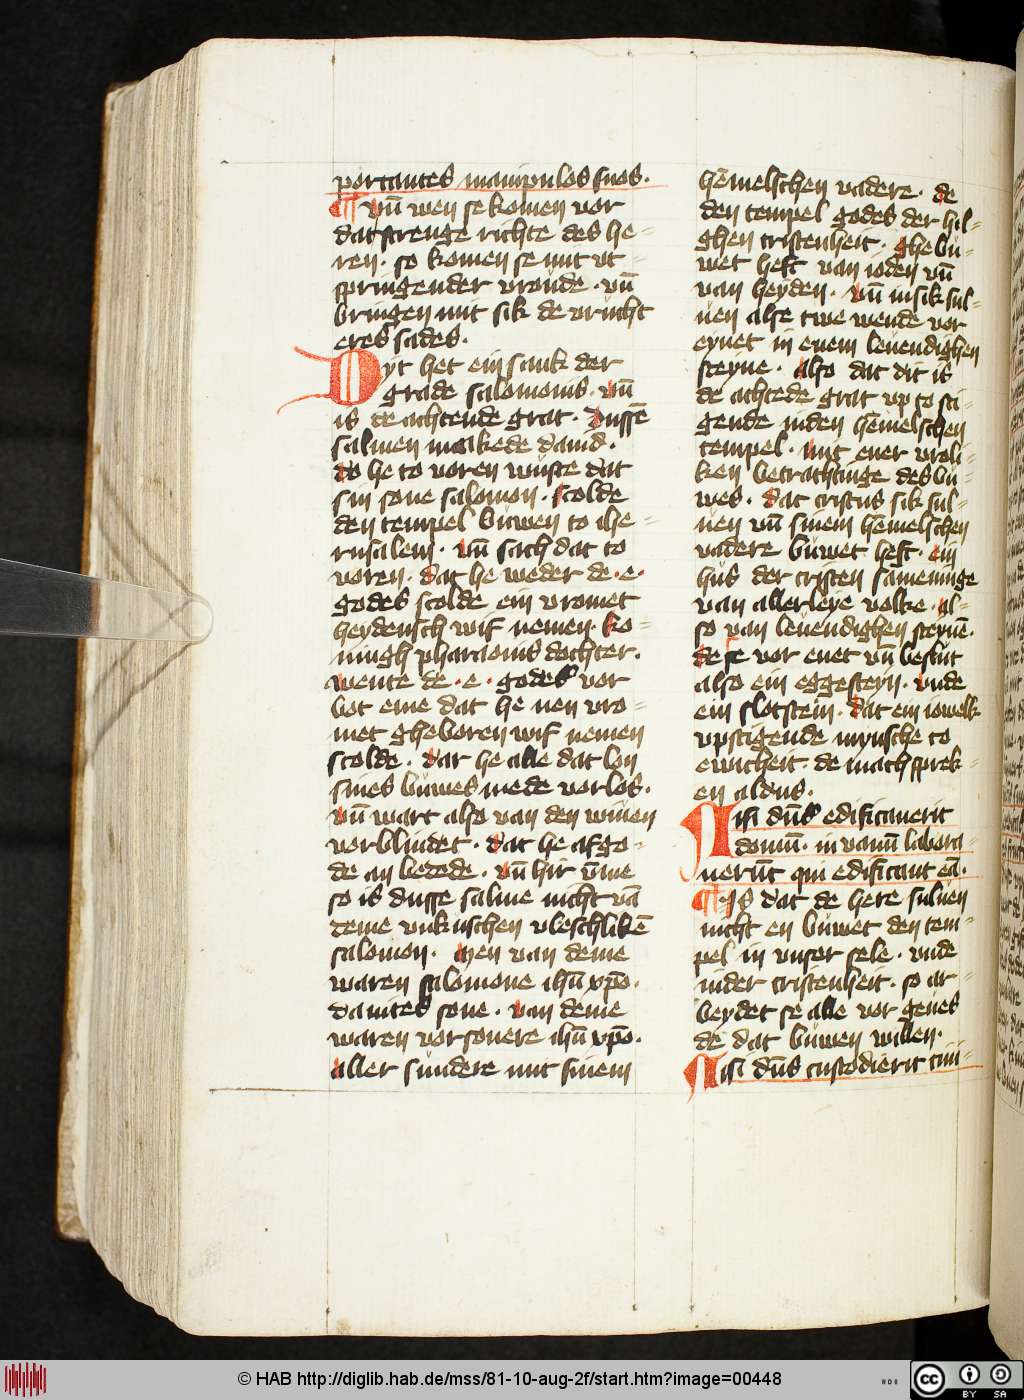 portantes manipulos suos.
¶ vn̄ wen se komen vor
dat strenge richte des he-
ren. so komen se mit vt-
springender vroude. vn̄
bringen mit sik de vrucht
eres sades.
Dyt het ein sank der
grade salomonis. vn̄
is de achtende grat. Dussē
salmen makede dauid.
do he to voren wuste dat
sin sone salomon. scolde
den tempel buwen to ihe-
rusalem. vn̄ sach dat to
voren. dat he weder de .e.
godes scolde ein vromet
heydensch wif nemen. ko-
ningh pharaonis dochter.
wente de .e. godes vor
bot eme dat he nen vro-
met gheboren wif nemen
scolde. dar he alle dat lon
sines buwes mede vorlos.
vn̄ wart also van den wiuen
vorblindet. dat he afgo-
de an bedede. vn̄ hir vmme
so is dusse salme nicht vā
deme vnkuschen vleschlikē
salomon. Men van deme
waren salomone ihū xpō.
dauites sone. van deme
waren vorsonere ihū xpō.
aller sundere mit sinem
hēmelschen vadere. de
den tempel godes der hil-
ghen cristenheit. ghebu-
wet heft van ioden vn̄
van heyden. vn̄ in sik sul-
uen alse twe wende vor
eynet in enem leuendighen
steyne. also dat dit is
de achtede grat vp to sti-
gende in den hēmelschen
tempel. mit ener vroli-
ken betrachtinge des bu-
wes. dat cristus sik sul-
uen vn̄ sinem hēmelschen
vadere buwet heft. ein
hus der cristen sameninge
van allerleye volke. al-
so van leuendighen steynē.
de se vor enet vn̄ beslut
also ein eggesteyn. vnde
ein slotstein. dat ein iowelk
vpstigende mynsche to
ewicheit. de mach sprek-
en aldus.
Nisi dn̄s edificauerit
domū. in vanū labora-
uerūt qui edificant eā.
¶ Is dat de here suluen
nicht en buwet den tem-
pel in vnser sele. vnde
in der cristenheit. so ar-
beydet se alle vor geues
de dat buwen willen.
Nisi dn̄s custodierit ciui-
© HAB http://diglib.hab.de/mss/81-10-aug-2f/start.htm?image=00448
cc BY SA